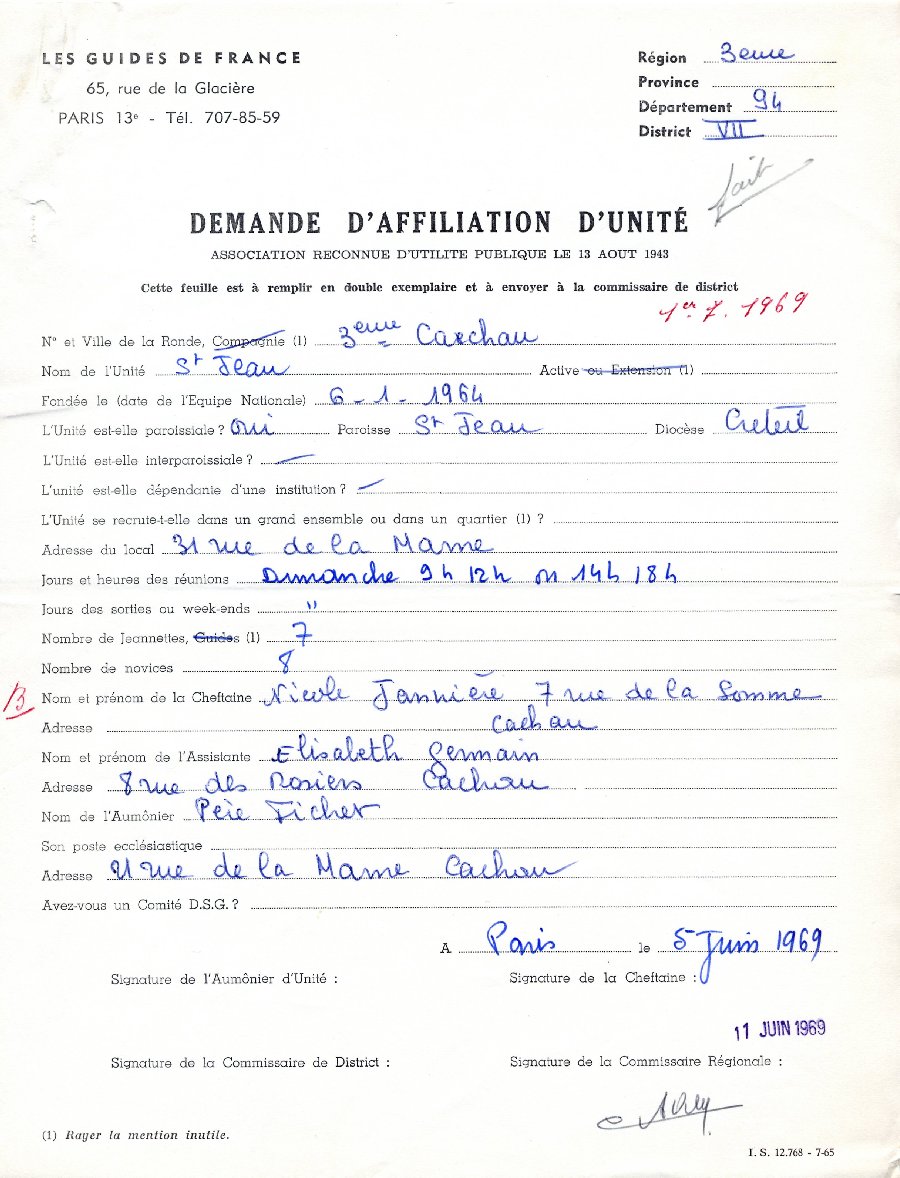 LES GUIDES DE FRANCE
65, rue de la Glacière
PARIS 13e - Tél. 707-85-59
Région 3eme
Province
Département 94
District VII
fait
DEMANDE D'AFFILIATION D'UNITÉ
ASSOCIATION RECONNUE D'UTILITE PUBLIQUE LE 13 AOUT 1943
Cette feuille est à remplir en double exemplaire et à envoyer à la commissaire de district
1er 7. 1969
N° et Ville de la Ronde, Compagnie (1) 3eme Cachan
Nom de l'Unité St Jean Active ou Extension (1)
Fondée le (date de l'Equipe Nationale) 6 - 1 - 1964
L'Unité est-elle paroissiale ? Oui Paroisse St Jean Diocèse Créteil
L'Unité est-elle interparoissiale ? —
L'unité est-elle dépendante d'une institution ? —
L'Unité se recrute-t-elle dans un grand ensemble ou dans un quartier (1) ?
Adresse du local 31 rue de la Marne
Jours et heures des réunions Dimanche 9h 12h ou 14h 18h
Jours des sorties ou week-ends "
Nombre de Jeannettes, Guides (1) 7
Nombre de novices 8
B Nom et prénom de la Cheftaine Nicole Jannière 7 rue de la Somme
Adresse Cachan
Nom et prénom de l'Assistante Elisabeth Germain
Adresse 8 rue des Rosiers Cachan
Nom de l'Aumônier Père Ficher
Son poste ecclésiastique
Adresse 21 rue de la Marne Cachan
Avez-vous un Comité D.S.G. ?
A Paris le 5 Juin 1969
Signature de l'Aumônier d'Unité : Signature de la Cheftaine :
11 JUIN 1969
Signature de la Commissaire de District : Signature de la Commissaire Régionale :
(1) Rayer la mention inutile.
I. S. 12.768 - 7-65